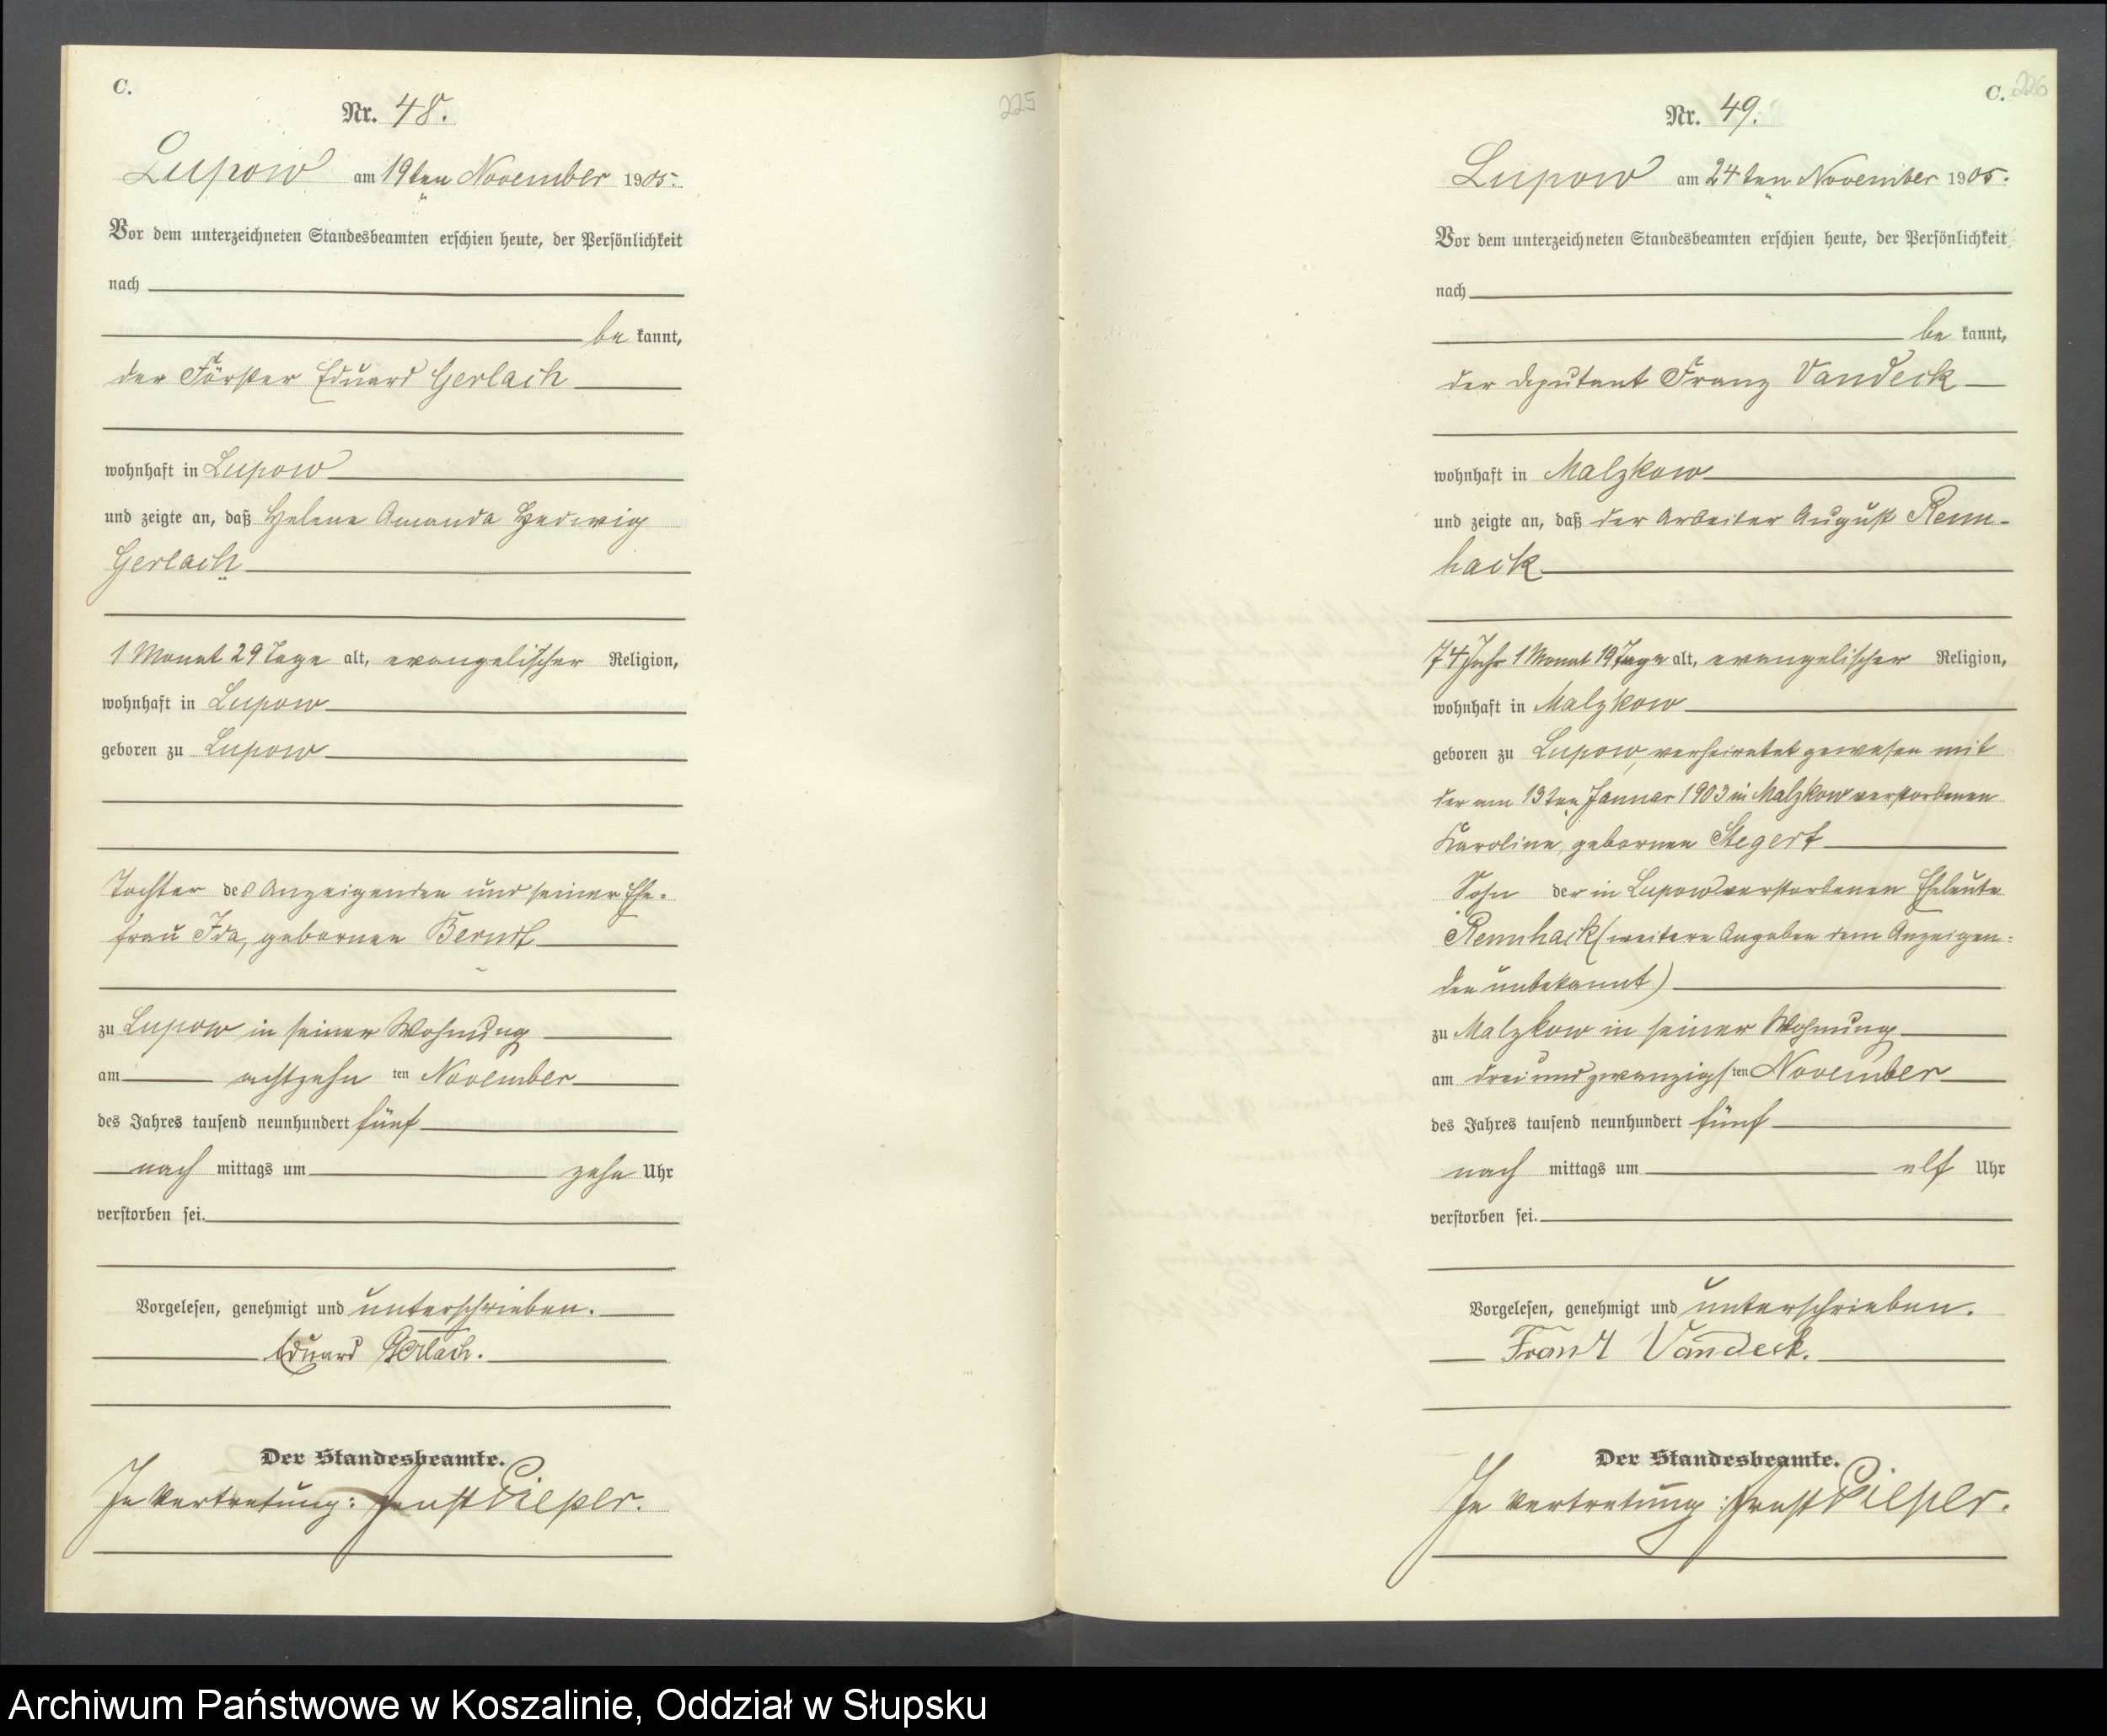 C.
225
Nr. 48.
Lupow am 19ten November 1905.
Vor dem unterzeichneten Standesbeamten erschien heute, der Persönlichkeit
nach
be kannt,
der Förster Eduard Gerlach
wohnhaft in Lupow
und zeigte an, daß Helene Amanda Hedwig
Gerlach
1 Monat 29 Tage alt, evangelischer Religion,
wohnhaft in Lupow
geboren zu Lupow
Tochter des Anzeigenden und seiner Ehe-
frau Ida, geborenen Berndt
zu Lupow in seiner Wohnung
am achtzehn ten November
des Jahres tausend neunhundert fünf
nach mittags um zehn Uhr
verstorben sei.
Vorgelesen, genehmigt und unterschrieben.
Eduard Gerlach.
Der Standesbeamte.
In Vertretung: Ernst Pieper.
C. 226
Nr. 49.
Lupow am 24ten November 1905.
Vor dem unterzeichneten Standesbeamten erschien heute, der Persönlichkeit
nach
be kannt,
der Deputant Franz Vandeck
wohnhaft in Malzkow
und zeigte an, daß der Arbeiter August Renn-
hack
74 Jahr 1 Monat 19 Tage alt, evangelischer Religion,
wohnhaft in Malzkow
geboren zu Lupow, verheiratet gewesen mit
der am 13ten Januar 1903 in Malzkow verstorbenen
Karoline, geborenen Stegert
Sohn der in Lupow verstorbenen Eheleute
Rennhack (weitere Angaben dem Anzeigen-
den unbekannt)
zu Malzkow in seiner Wohnung
am dreiundzwanzigs ten November
des Jahres tausend neunhundert fünf
nach mittags um elf Uhr
verstorben sei.
Vorgelesen, genehmigt und unterschrieben.
Franz Vandeck.
Der Standesbeamte.
In Vertretung: Ernst Pieper.
Archiwum Państwowe w Koszalinie, Oddział w Słupsku